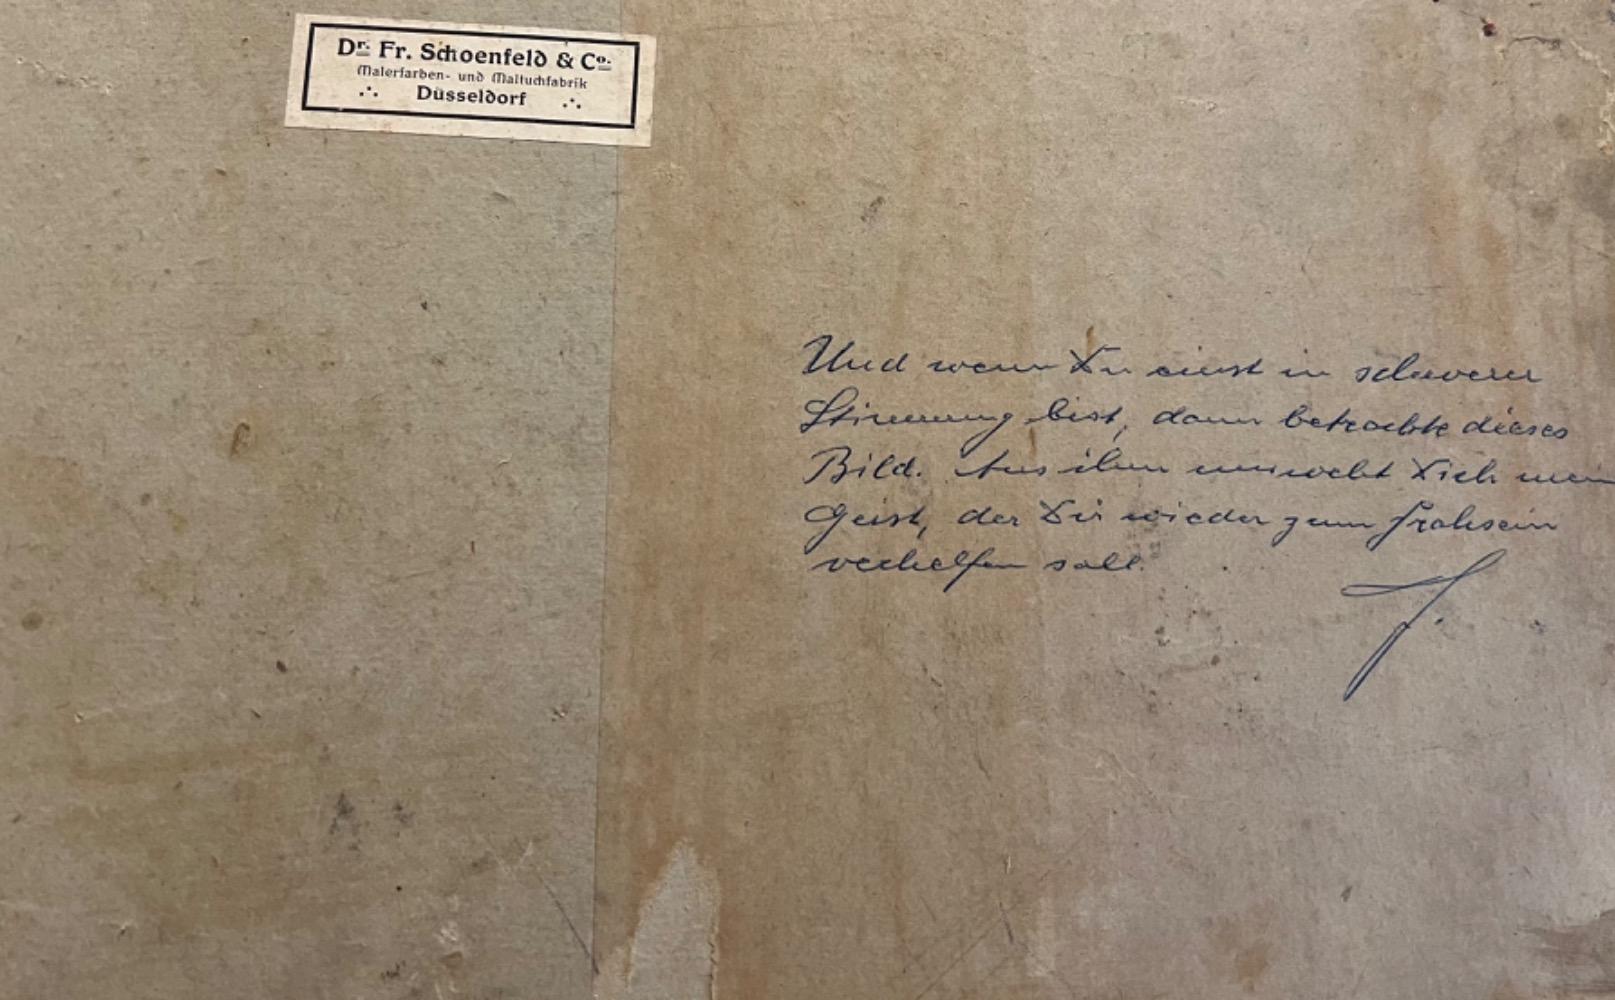 Dr. Fr. Schoenfeld & Co.
Malerfarben- und Maltuchfabrik
Düsseldorf
Und wenn Du einst in schwerer
Stimmung bist, dann betrachte dieses
Bild. Aus ihm umweht Dich mein
Geist, der Dir wieder zum Frohsein
verhelfen soll.